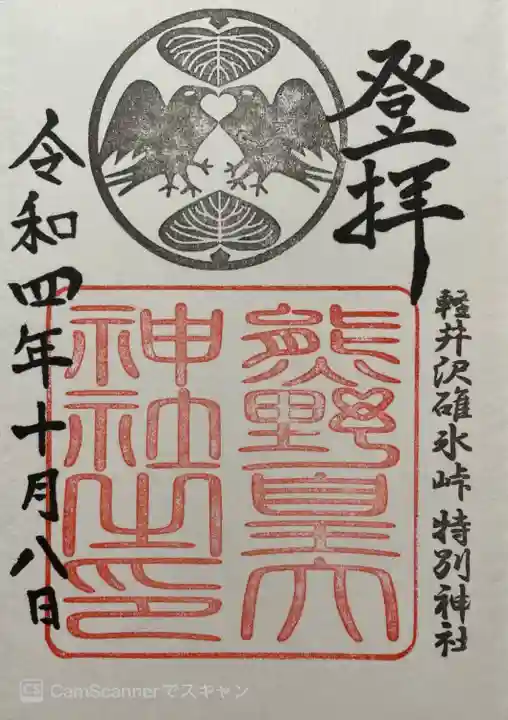 登拝
軽井沢碓氷峠 特別神社
熊野皇大
神社之印
令和四年十月八日
CS CamScannerでスキャン